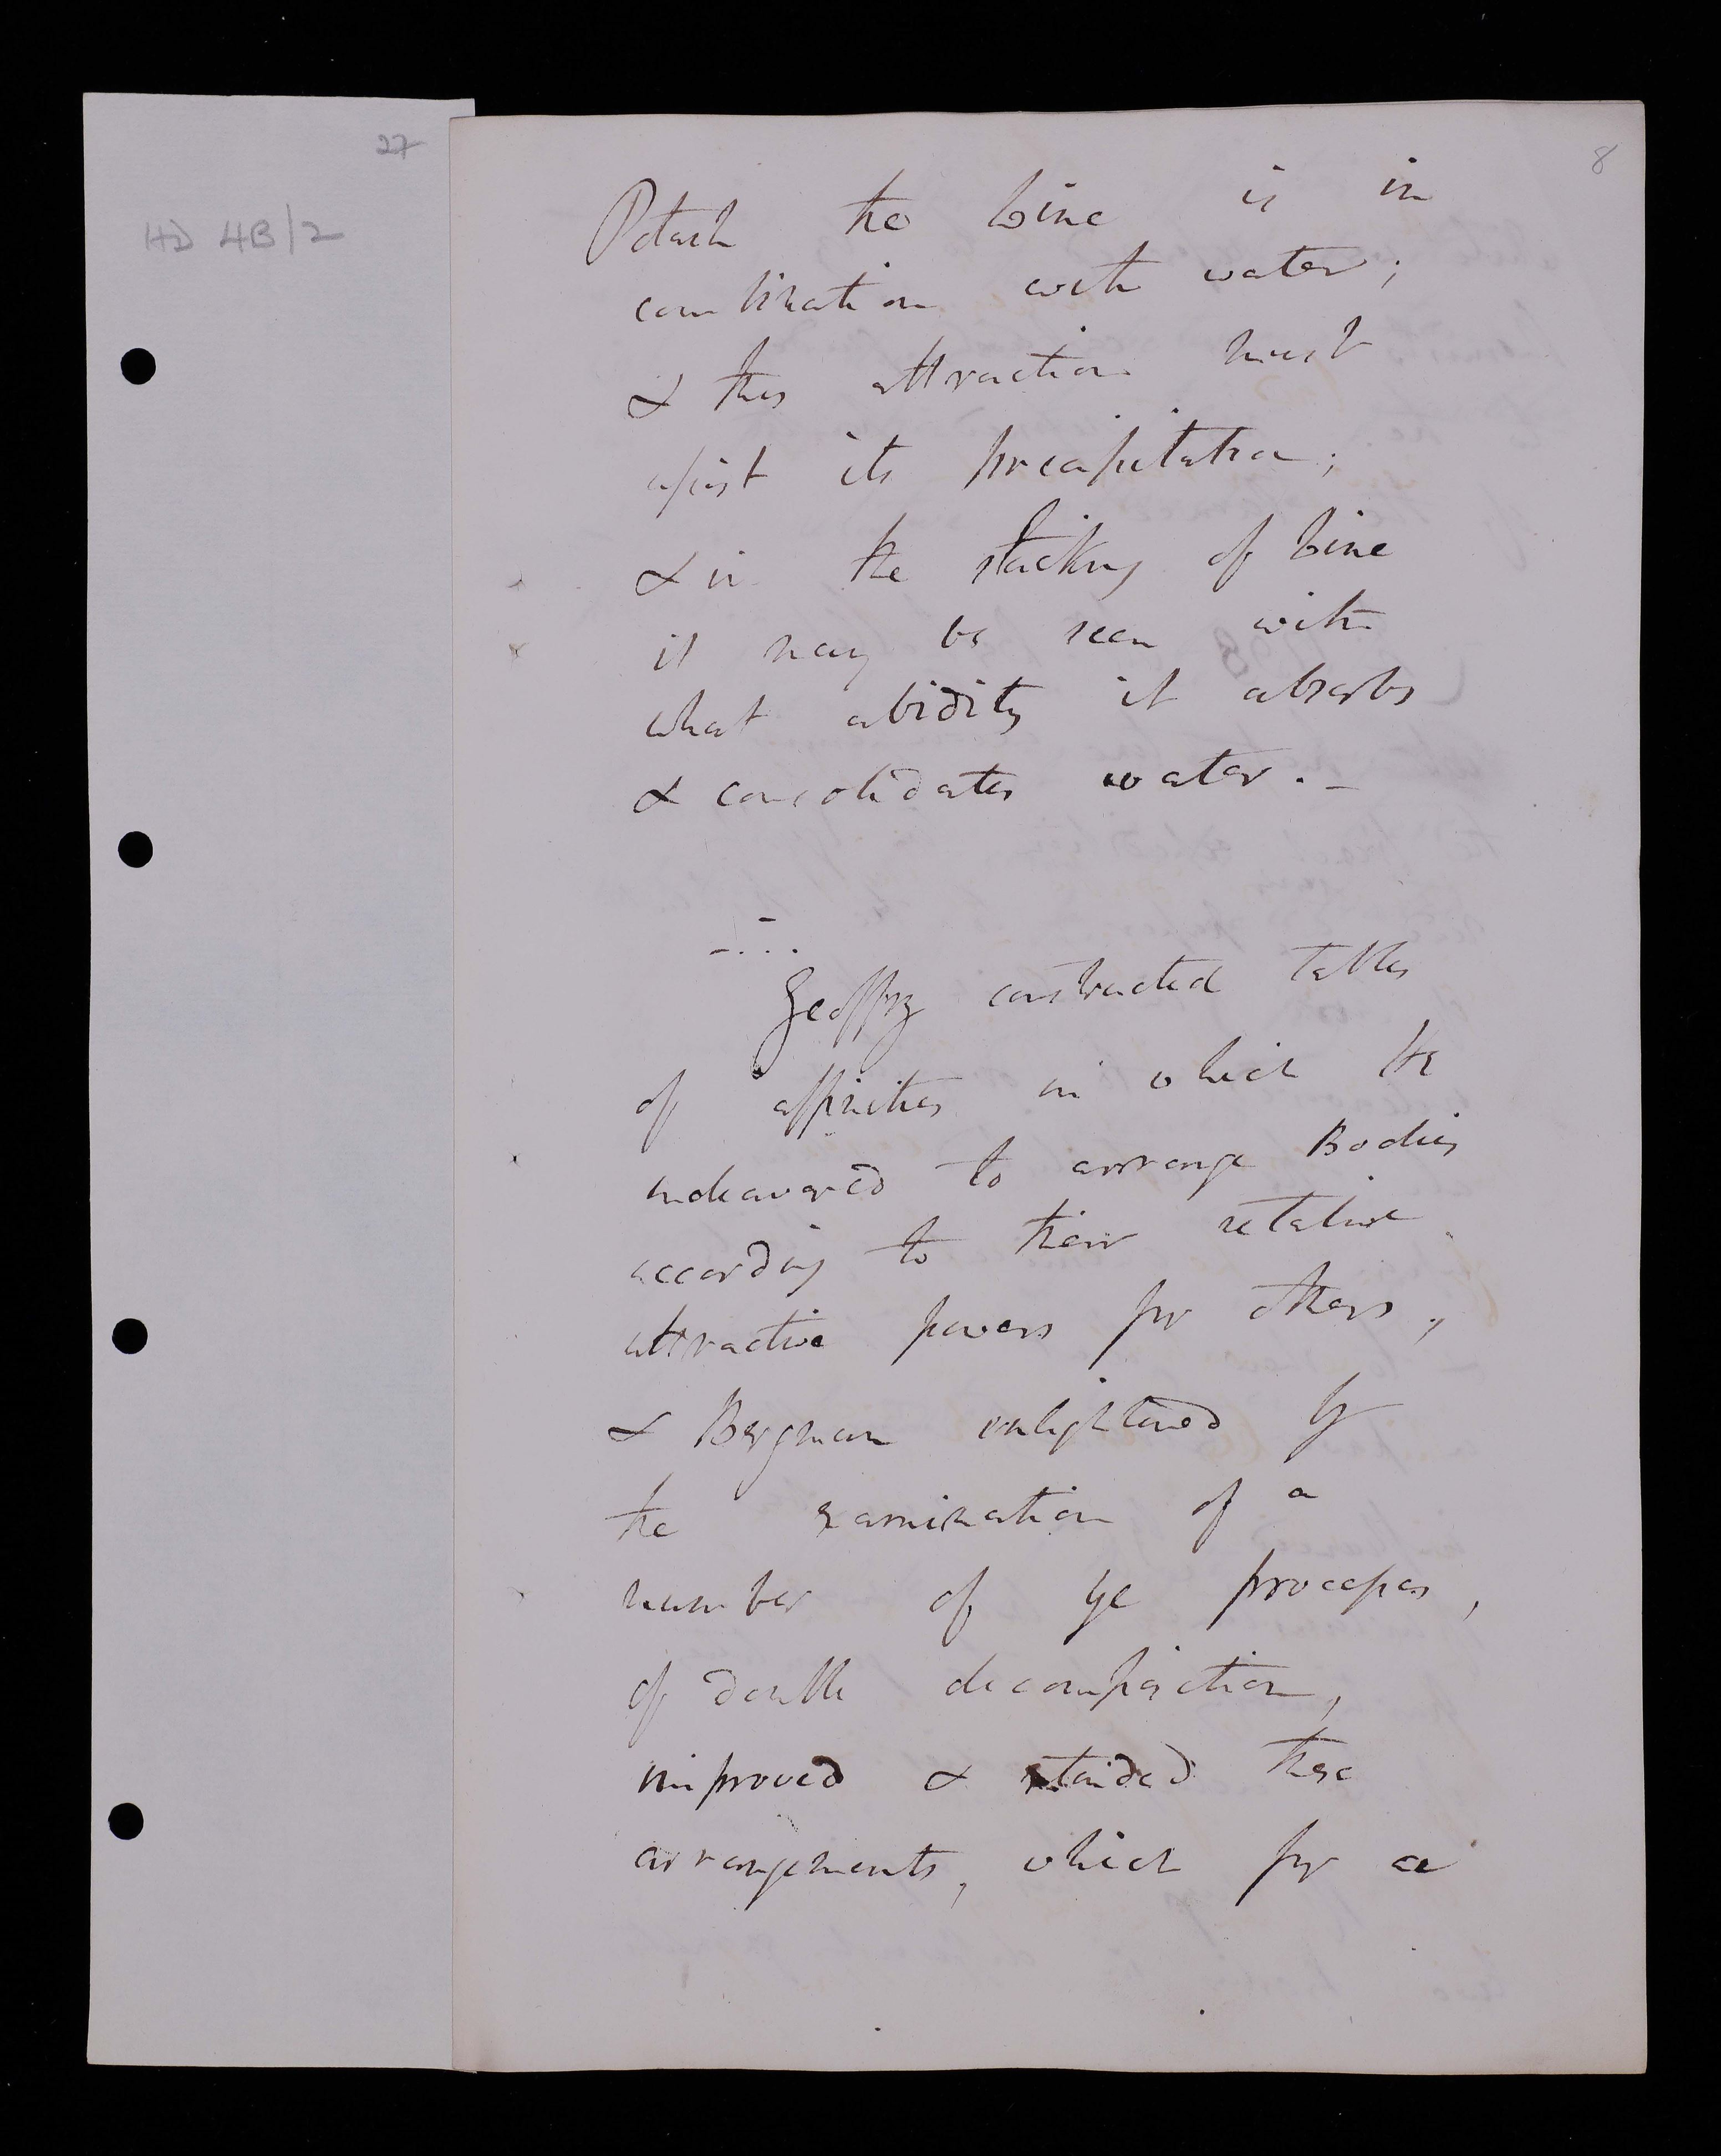 27
HD 4B/2
8
Potash the lime is in
combination with water;
& this attraction must
assist its precipitation;
& in the slacking of lime
it may be seen with
what avidity it absorbs
& consolidates water. _
Geoffry constructed tables
of affinities in which he
endeavored to arrange Bodies
according to their relative
attractive powers for others,
& Bergman enlightened by
the examination of a
number of ye processes,
of double decomposition,
improved & extended these
arrangements, which for a